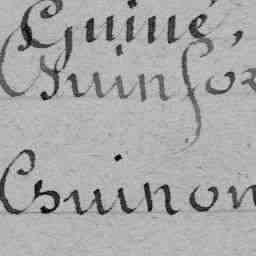 Guiné,
Guinfor
Guinon